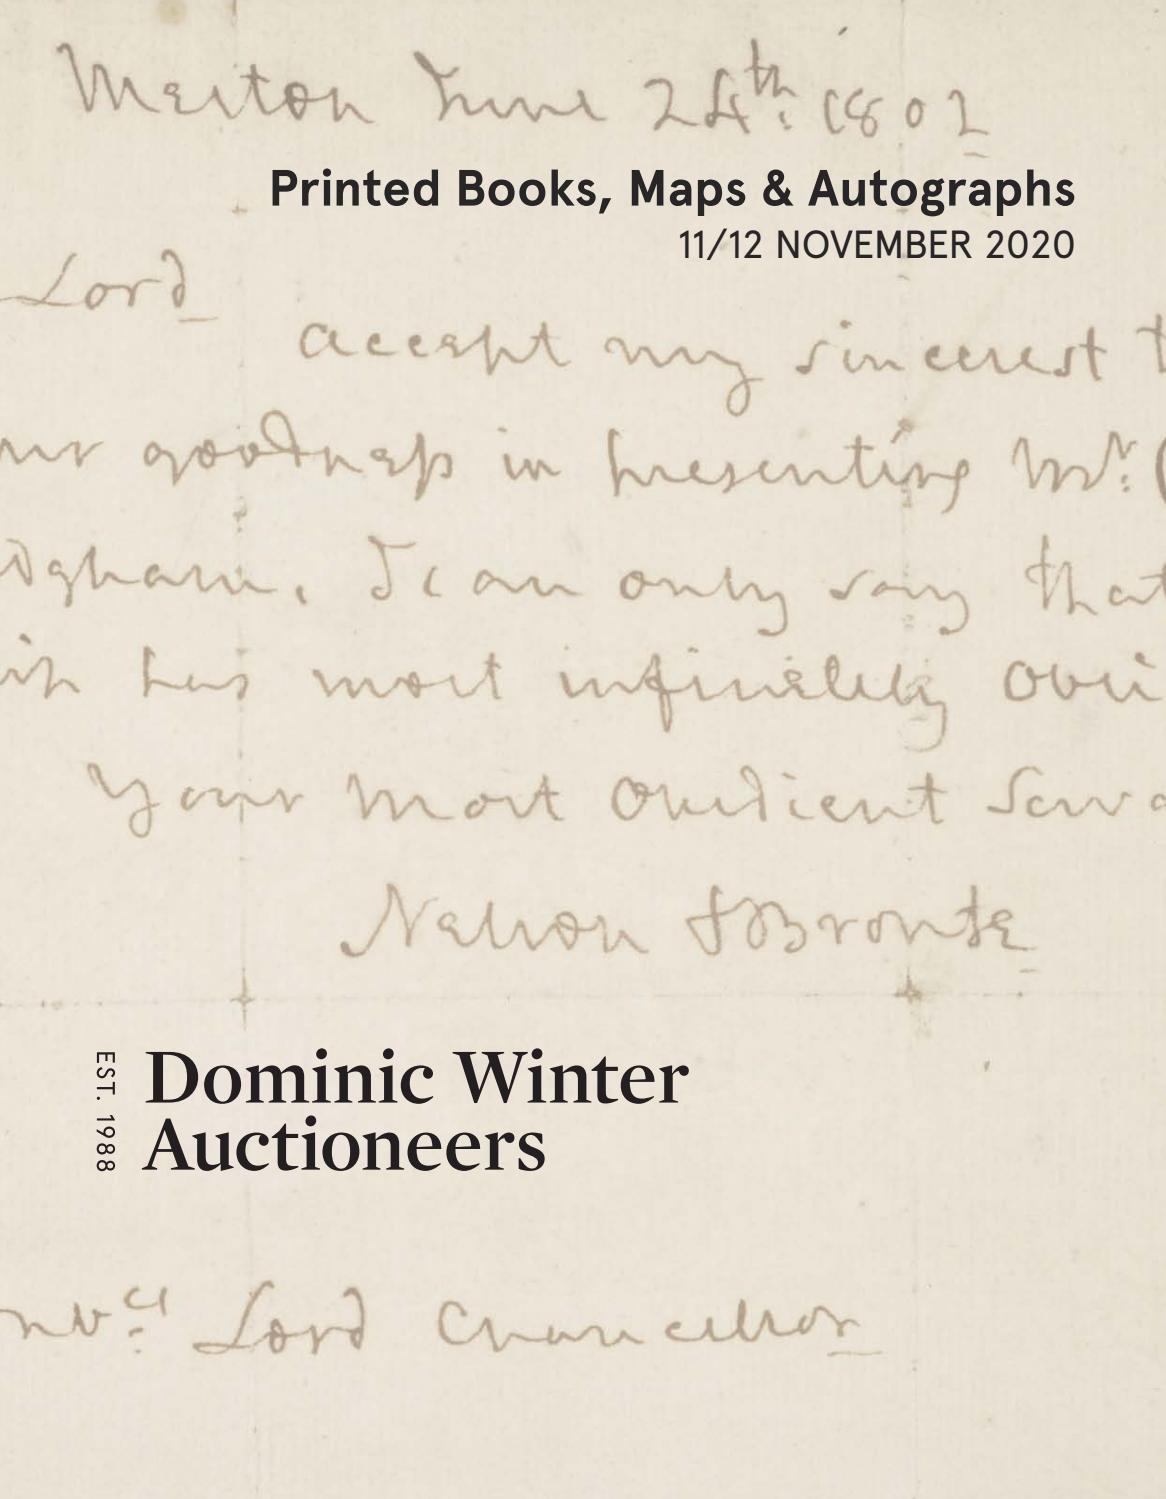 Merton June 24th: 1802
Printed Books, Maps & Autographs
11/12 NOVEMBER 2020
Lord
accept my sincerest
goodness in presenting Mr:
I can only say that
has most infinitely
Your Most Obedient
Nelson & Bronte
EST. 1988
Dominic Winter
Auctioneers
Lord Chancellor